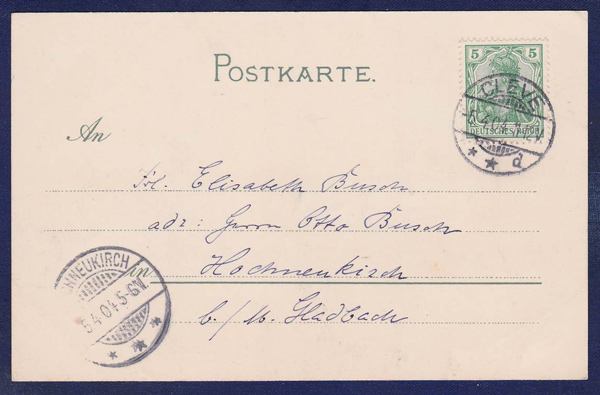 POSTKARTE.
5 5
DEUTSCHES REICH
CLEVE
5.4.04
d
An
Frl. Elisabeth Busch
adr: Herrn Otto Busch
in
Hochneukirch
b/ M. Gladbach
HNNEUKIRCH
5.4.04.5-6N.